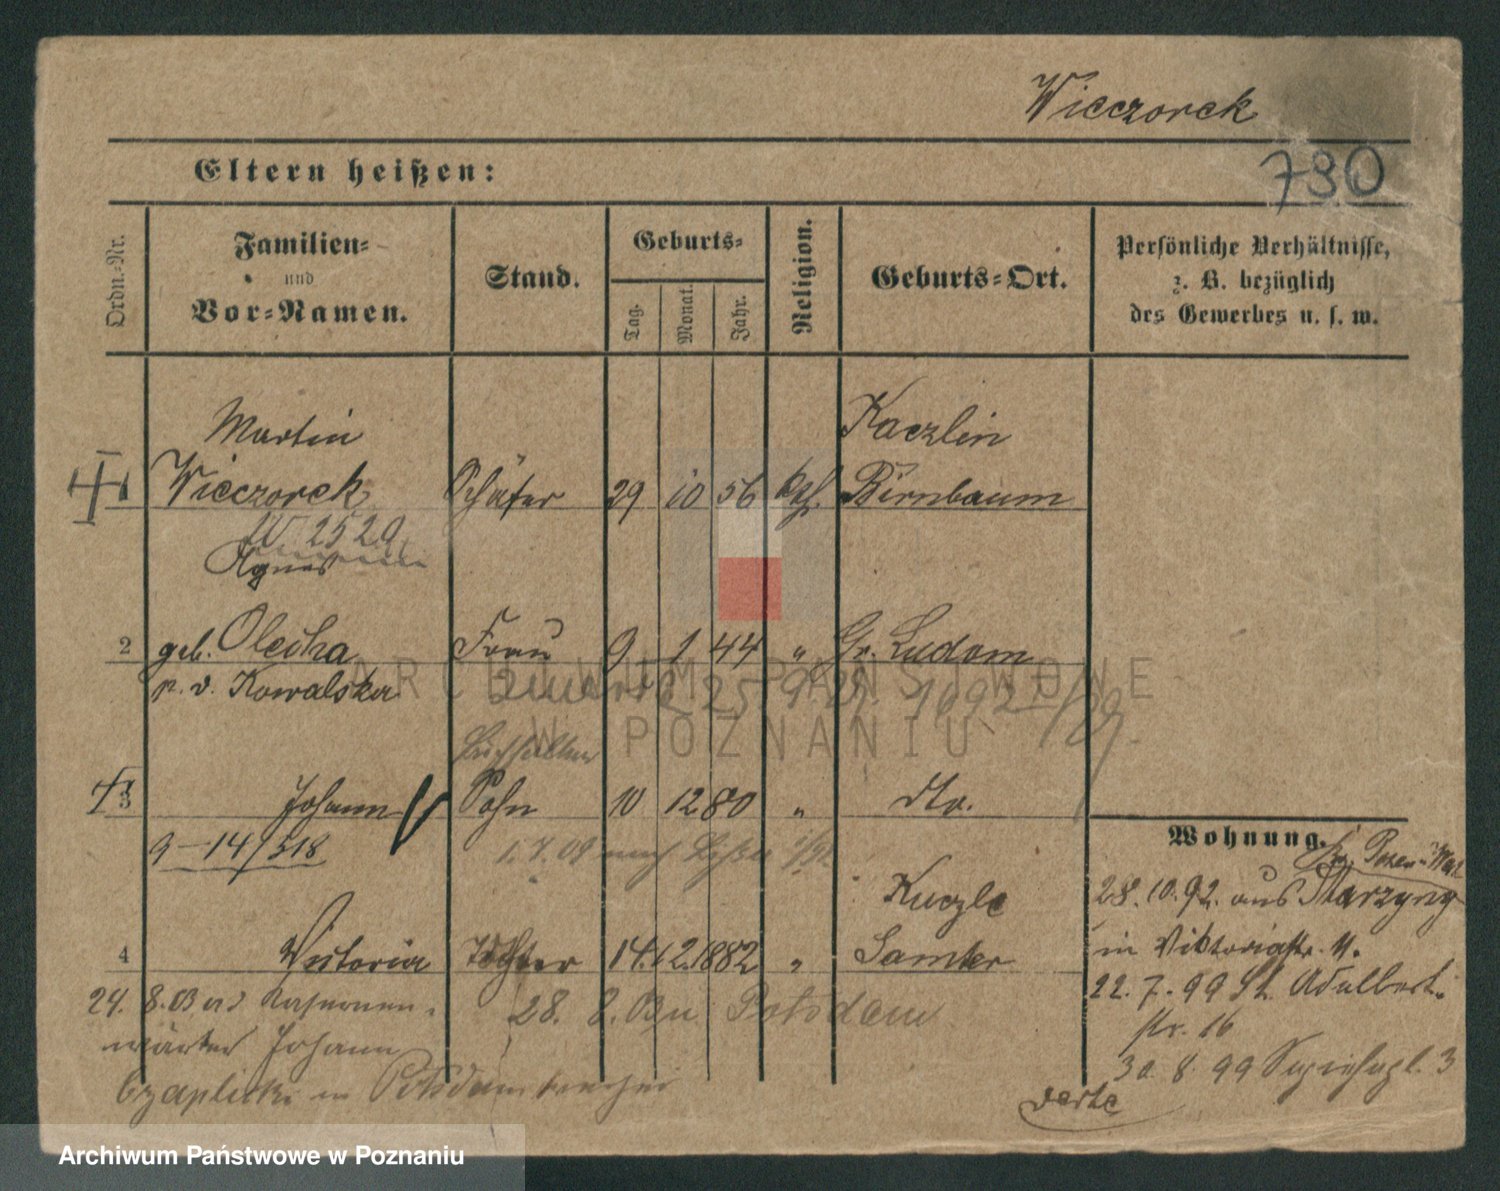 Wieczorek
790
Eltern heißen:
Ordn.-Nr.
Familien-
und
Vor-Namen.
Stand.
Geburts-
Tag.
Monat.
Jahr.
Religion.
Geburts-Ort.
Persönliche Verhältnisse,
z. B. bezüglich
des Gewerbes u. s. w.
Martin Kaczlin
1 Wieczorek Schäfer 29 10 56 kth. Birnbaum
W 2520
Agnes
2 geb. Olecha Frau 9 1 44 " Gr. Ludom
p. v. Kowalska
3 Johann Sohn 10 12 80 " dto.
9-14/318 1.7.09 nach
Wohnung.
28.10.92. aus
in Viktoriastr. 11.
22.7.99 St. Adalbert-
str. 16
30.8.99 3
verte
Kuczle
4 Victoria Tochter 14. 12. 1882 " Samter
24. 8.03 Kasernen-
wärter Johann 28. 8. Potsdam
Czaplicki in Potsdam
ARCHIWUM PAŃSTWOWE
W POZNANIU
Archiwum Państwowe w Poznaniu